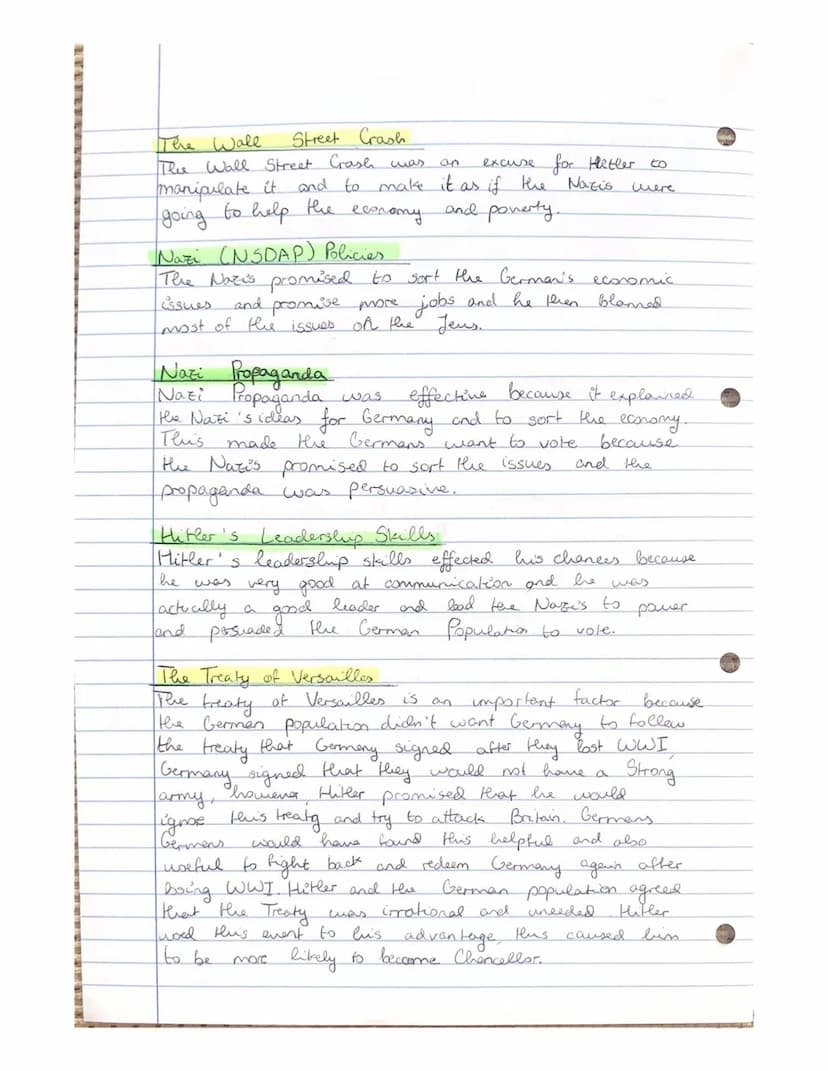 The Wall Street Crash
The Wall Street Crash was an excuse for Hitler to
manipulate it and to make it as if the Nazis were
going to help the economy and poverty.
Nazi (NSDAP) Policies
The Nazis promised to sort the German's economic
issues and promise more jobs and he then blamed
most of the issues on the Jews.
Nazi Propaganda
Nazi Propaganda was effective because it explained
the Nazi's ideas for Germany and to sort the economy.
This made the Germans want to vote because
the Nazi's promised to sort the issues and the
propaganda was persuasive.
Hitler's Leadership Skills
Hitler's leadership skills effected his chances because
he was very good at communication and he was
actually a good leader and lead the Nazi's to power
and persuaded the German Population to vote.
The Treaty of Versailles
The treaty of Versailles is an important factor because
the German population didn't want Germany to follow
the treaty that Germany signed after they lost WWI,
Germany signed that they would not have a Strong
army, however, Hitler promised that he would
ignoe this treaty and try to attack Britain. Germans
Germans would have found this helpful and also
useful to fight back and redeem Germany again after
losing WWI. Hitler and the German population agreed
that the Treaty was irrational and uneeded. Hitler
used this event to his advantage, this caused him
to be more likely to become Chancellor.